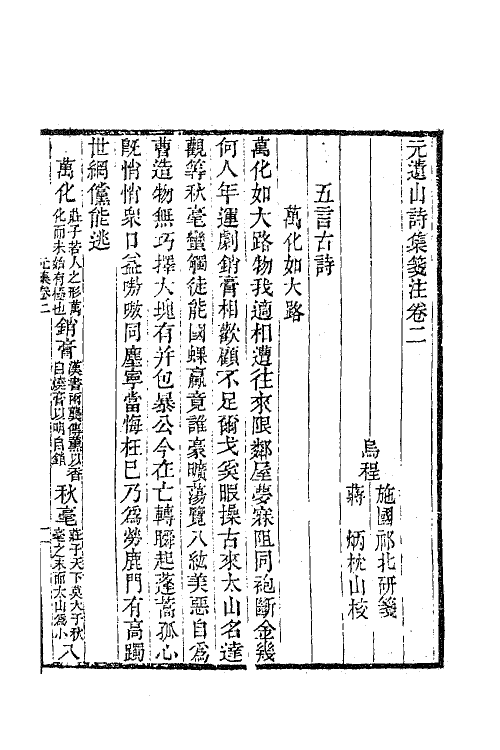 元遺山詩集箋注卷二
烏程
施國祁北研箋
蔣　炳枕山校
五言古詩
萬化如大路
萬化如大路物我適相遭往來限鄰屋夢寐阻同袍斷金幾
何人年運劇銷膏相歡顧不足爾戈奚暇操古來太山名達
觀等秋毫蠻觸徒能國蜾蠃竟誰豪曠蕩覽八紘美惡自為
曹造物無巧擇大塊有并包暴公今在亡轉瞬起蓬蒿孤心
既悄悄衆口益嗸嗸同塵寧當悔枉已乃為勞鹿門有高躅
世網儻能逃
萬化莊子若人之形萬化而未始有極也銷膏漢書兩龔傳薰以香自燒膏以明自銷秋毫莊子天下莫大于秋毫之末而太山為小八
元集卷二
一